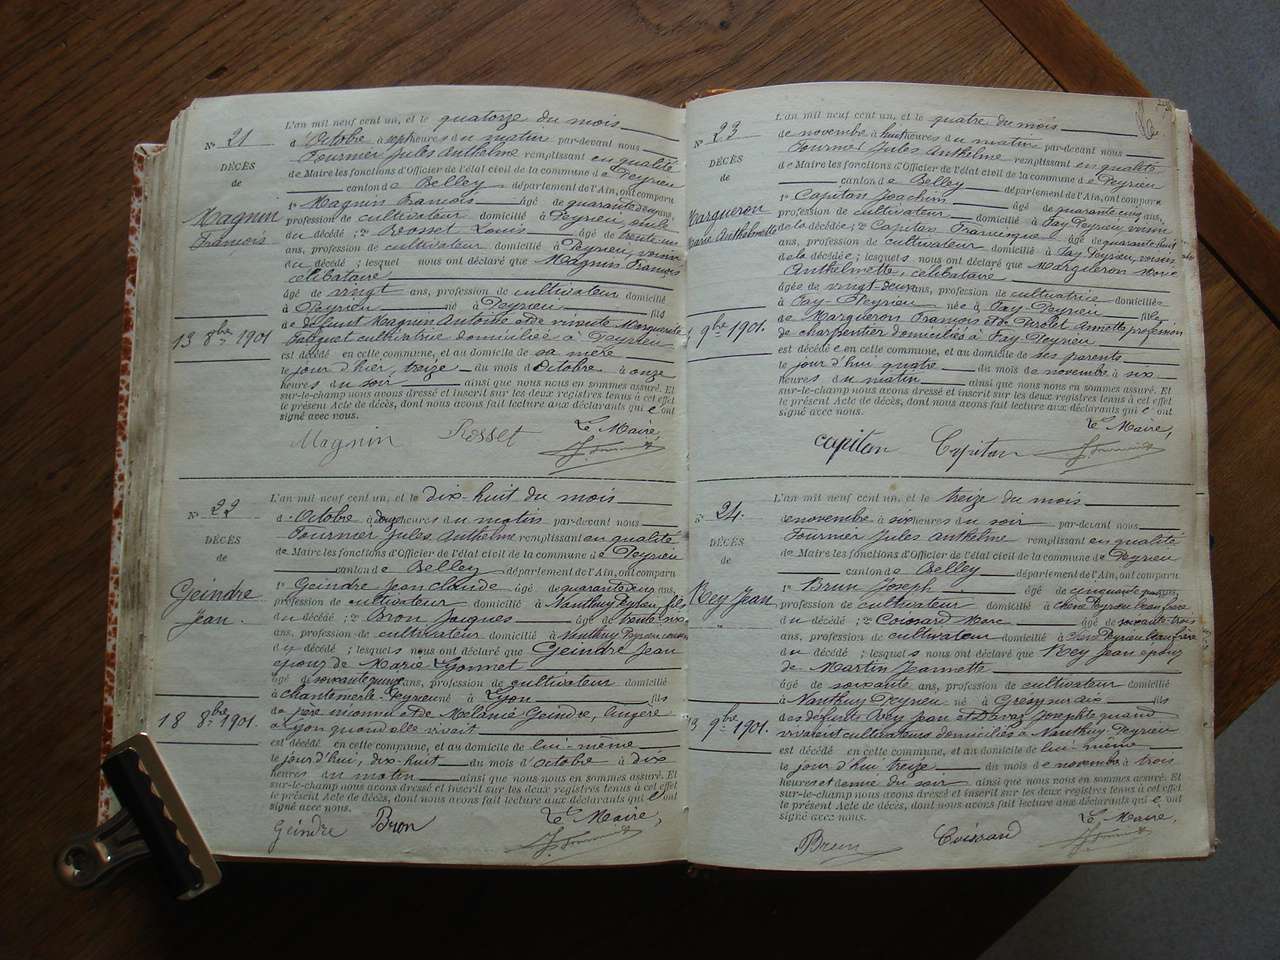 N° 21
DÉCÈS
de
Magnin
François
13 8bre 1901
L'an mil neuf cent un, et le quatorze du mois
d'Octobre à sept heures du matin par-devant nous
Fournier Jules Anthelme remplissant en qualité
de Maire les fonctions d'Officier de l'état civil de la commune de Peyrieu
canton de Belley département de l'Ain, ont comparu
1° Magnin François âgé de quarante ans,
profession de cultivateur domicilié à Peyrieu
du décédé ; 2° Rosset Louis âgé de trente-un
ans, profession de cultivateur domicilié à Peyrieu, voisin
du décédé ; lesquels nous ont déclaré que Magnin François
célibataire
âgé de vingt ans, profession de cultivateur domicilié
à Peyrieu né à Peyrieu fils
de défunt Magnin Antoine et de vivante Marguerite
cultivatrice domiciliée à Peyrieu
est décédé en cette commune, et au domicile de sa mère
le jour d'hier, treize du mois d'Octobre à onze
heures du soir ainsi que nous nous en sommes assuré. Et
sur-le-champ nous avons dressé et inscrit sur les deux registres tenus à cet effet
le présent Acte de décès, dont nous avons fait lecture aux déclarants qui ont
signé avec nous.
Le Maire,
Magnin Rosset J. Fournier
N° 22
DÉCÈS
de
Geindre
Jean.
18 8bre 1901.
L'an mil neuf cent un, et le dix-huit du mois
d'Octobre à heures du matin par-devant nous
Fournier Jules Anthelme remplissant en qualité
de Maire les fonctions d'Officier de l'état civil de la commune de Peyrieu
canton de Belley département de l'Ain, ont comparu
1° Geindre Jean Claude âgé de quarante deux ans,
profession de cultivateur domicilié à Nanthuy Peyrieu, fils
du décédé ; 2° Bron Jacques âgé de trente-six
ans, profession de cultivateur domicilié à Nanthuy Peyrieu
du décédé ; lesquels nous ont déclaré que Geindre Jean
époux de Marie Gonnet
âgé de soixante quinze ans, profession de cultivateur domicilié
à Chantemerle-Peyrieu né à Lyon fils
de père inconnu et de Mélanie Geindre, lingère
à Lyon quand elle vivait
est décédé en cette commune, et au domicile de lui-même
le jour d'hui, dix-huit du mois d'octobre à dix
heures du matin ainsi que nous nous en sommes assuré. Et
sur-le-champ nous avons dressé et inscrit sur les deux registres tenus à cet effet
le présent Acte de décès, dont nous avons fait lecture aux déclarants qui ont
signé avec nous.
Le Maire,
Geindre Bron J. Fournier
N° 23
DÉCÈS
de
Margueron
Marie Anthelmette
4 9bre 1901.
L'an mil neuf cent un, et le quatre du mois
de novembre à huit heures du matin par-devant nous
Fournier Jules Anthelme remplissant en qualité
de Maire les fonctions d'Officier de l'état civil de la commune de Peyrieu
canton de Belley département de l'Ain, ont comparu
1° Capitan Joachim âgé de quarante cinq ans,
profession de cultivateur domicilié à Fay-Peyrieu, voisin
de la décédée ; 2° Capitan Francisque âgé de quarante huit
ans, profession de cultivateur domicilié à Fay-Peyrieu, voisin
de la décédée ; lesquels nous ont déclaré que Margueron Marie
Anthelmette, célibataire
âgée de vingt-deux ans, profession de cultivatrice domiciliée
à Fay-Peyrieu née à Fay-Peyrieu fille
de Margueron François et de Perolet Annette profession
de charpentier domiciliés à Fay Peyrieu
est décédée en cette commune, et au domicile de ses parents
le jour d'hui quatre du mois de novembre à six
heures du matin ainsi que nous nous en sommes assuré. Et
sur-le-champ nous avons dressé et inscrit sur les deux registres tenus à cet effet
le présent Acte de décès, dont nous avons fait lecture aux déclarants qui ont
signé avec nous.
Le Maire,
capitan Capitan J. Fournier
N° 24.
DÉCÈS
de
Rey Jean
13 9bre 1901.
L'an mil neuf cent un, et le treize du mois
de novembre à six heures du soir par-devant nous
Fournier Jules Anthelme remplissant en qualité
de Maire les fonctions d'Officier de l'état civil de la commune de Peyrieu
canton de Belley département de l'Ain, ont comparu
1° Brun Joseph âgé de cinquante ans,
profession de cultivateur domicilié à Peyrieu beau frère
du décédé ; 2° Coissard Marc âgé de soixante-trois
ans, profession de cultivateur domicilié à Peyrieu beau frère
du décédé ; lesquels nous ont déclaré que Rey Jean époux
de Martin Jeannette
âgé de soixante ans, profession de cultivateur domicilié
à Nanthuy Peyrieu né à Grésy sur Aix fils
des défunts Rey Jean et Davat Josephte quand
vivaient cultivateurs domiciliés à Nanthuy-Peyrieu
est décédé en cette commune, et au domicile de lui-même
le jour d'hui treize du mois de novembre à trois
heures et demie du soir ainsi que nous nous en sommes assuré. Et
sur-le-champ nous avons dressé et inscrit sur les deux registres tenus à cet effet
le présent Acte de décès, dont nous avons fait lecture aux déclarants qui ont
signé avec nous.
Le Maire,
Brun Coissard J. Fournier